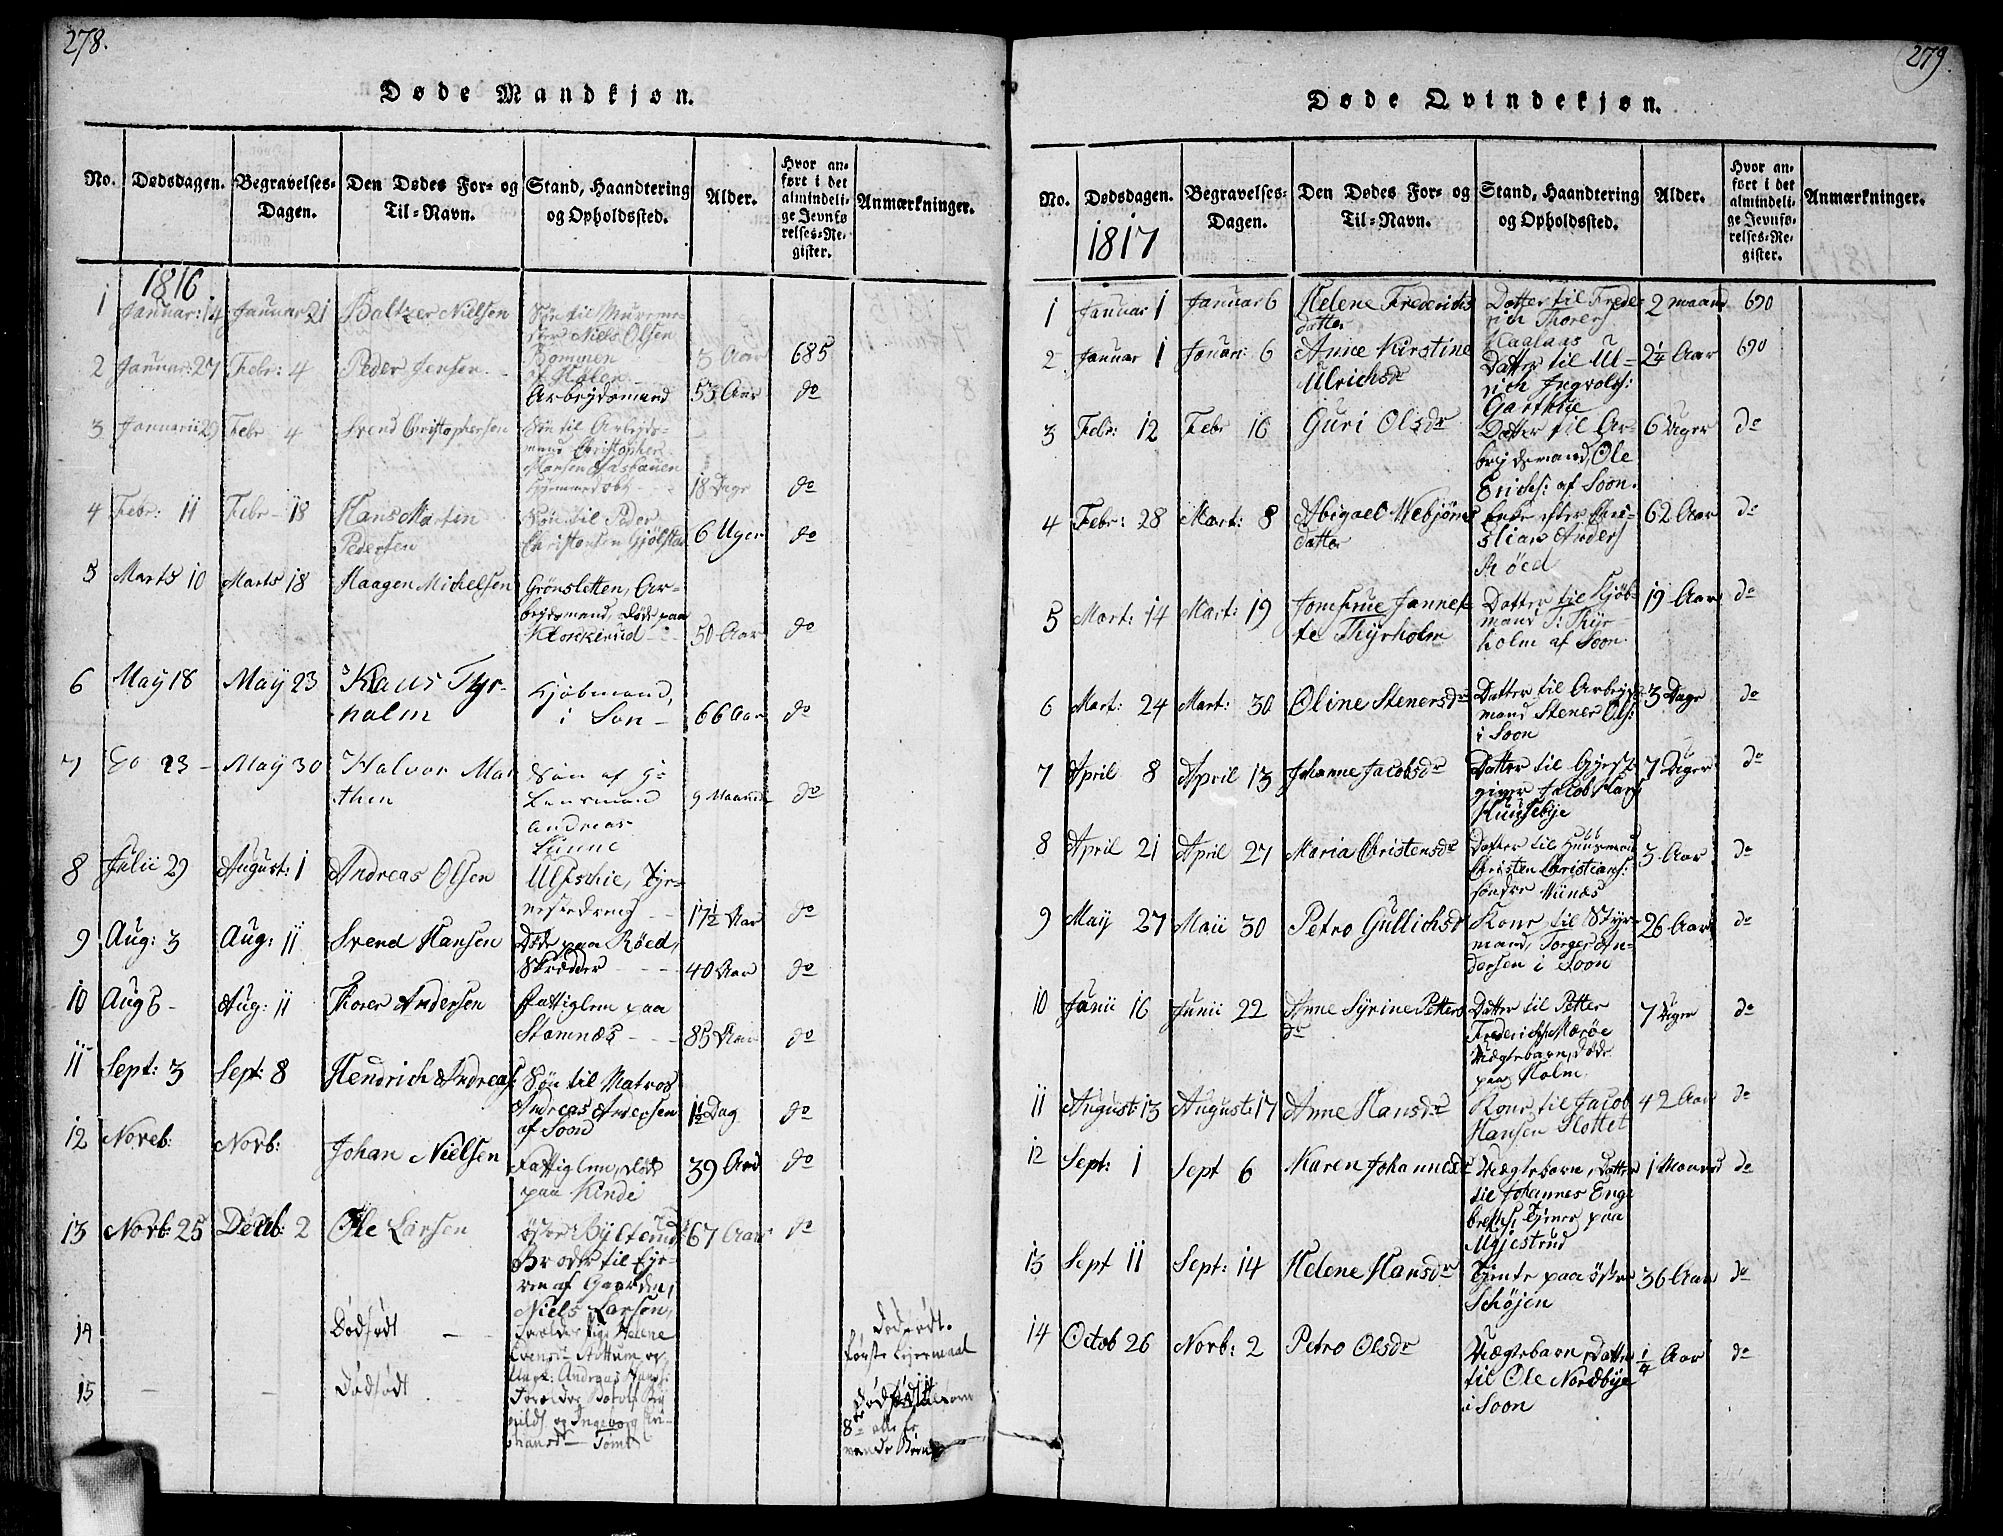 278.
Døde Mandkjøn.
No. Dødsdagen. Begravelses-Dagen. Den Dødes For- og Til-Navn. Stand, Haandtering og Opholdssted. Alder. Hvor anført i det almindelige Jevnførelses-Register. Anmærkninger.
1816
1 Januar: 14 Januar 21 Baltzer Nielsen Søn til Murme-
ster Niels Olsen
Bommen
af Hølen 3 Aar 685
2 Januar: 27 Febr: 4 Peder Jensen
Arbejdsmand 53 Aar do
3 Januarii 29 Febr 4 Svend Christophersen Søn til Arbejds-
mand Christopher
Hansen
18 Dage do
4 Febr: 11 Febr 18 Hans Martin
Pedersen Søn til Peder
Christensen Gjølstad 6 Uger do
5 Marts 10 Marts 18 Haagen Michelsen Grønsletten, Ar-
bejdsmand, døde paa
Klokkerud 50 Aar do
6 May 18 May 23 Klaus Tyr-
holm Kjøbmand,
i Son 66 Aar do
7 do 23 May 30 Halvor Ma
then Søn af
Lensmand
Andreas
Linne 9 Maaned do
8 Julii 29 August: 1 Andreas Olsen Tje-
nestedreng 17½ Aar do
9 Aug: 3 Aug: 11 Svend Hansen Døde paa Røed,
Skrædder 40 Aar do
10 Aug 6 Aug: 11 Thorer Andersen Fattiglem paa
Stamnæs 85 Aar do
11 Sept: 3 Sept: 8 Hendrich Andreas: Søn til Matros
Andreas Andersen
af Soon 1½ Dag do
12 Noveb: Novb: Johan Nielsen Fattiglem, døde
paa Kinde 39 Aar do
13 Novb: 25 Decb: 2 Ole Larsen Øster Bylterud
Broder til Eje-
ren af Gaarden,
Niels Larsen, 67 Aar do
14 Dødfødt Forældre Pige Helene
Svensd. Stottum og
Ungk: Andreas Hans: Dødfødt.
første Lejermaal
15 Dødfødt Forældre
og Ingeborg
Tomt Dødfødt
279.
Døde Qvindekjøn.
No. Dødsdagen. Begravelses-Dagen. Den Dødes For- og Til-Navn. Stand, Haandtering og Opholdssted. Alder. Hvor anført i det almindelige Jevnførelses-Register. Anmærkninger.
1817
1 Januar 1 Januar 6 Helene Frederichs
datter Datter til Frede-
rich Thorers:
Haalaas 2 maaned 690
2 Januar 1 Januar: 6 Anne Kirstine
Ulrichsdr Datter til Ul-
rich Ingvolds:
Garthue 2¼ Aar 690
3 Febr: 12 Febr 16 Guri Olsdr Datter til Ar-
bejdsmand, Ole
Erichs: af Soon. 6 Uger do
4 Febr: 28 Mart: 8 Abigael Webjørns
datter Enke efter Chri-
stian Anders
Røed 62 Aar do
5 Mart: 14 Mart: 19 Jomfrue Jannet-
te Thyrholm Datter til Kjøb-
mand T: Thyr-
holm af Soon 19 Aar do
6 Mart: 24 Mart: 30 Oline Stenersdr Datter til Arbejds-
mand Stener Ols:
i Soon 3 Dage do
7 April 8 April 13 Johanne Jacobsdr Datter til Gjæst-
giver Jacob Hans
Huusebye 7 Uger do
8 April 21 April 27 Maria Christensdr Datter til Huusmand
Christen Christians:
søndre Hunæs 3 Aar do
9 May 27 Maii 30 Petro Gullichsdr Kone til Styr-
mand, Torger An-
dersen i Soon 26 Aar do
10 Junii 16 Junii 22 Anne Syrine Petters
dr Datter til Petter
Frederichs: Mærøe
Uægtebarn, døde
paa Holm 7 Uger do
11 August: 13 August: 17 Anne Hansdr Kone til Jacob
Hansen Slottet 42 Aar do
12 Sept: 1 Sept 6 Karen Johannesdr Uægtebarn, Datter
til Johannes Enge
brechs, tjener paa
Mjestrud 1 Maaned do
13 Sept 11 Sept: 14 Helene Hansdr tjente paa Østre
Schøjen 36 Aar do
14 Octob 26 Novb: 2 Petro Olsdr Uægtebarn, Datter
til Ole Nordbye
i Soon ¼ Aar do